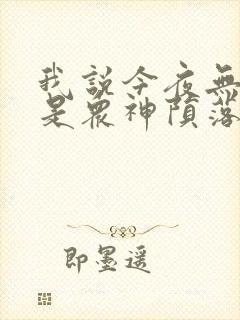 我說今夜無
是眾神隕落
即墨遥